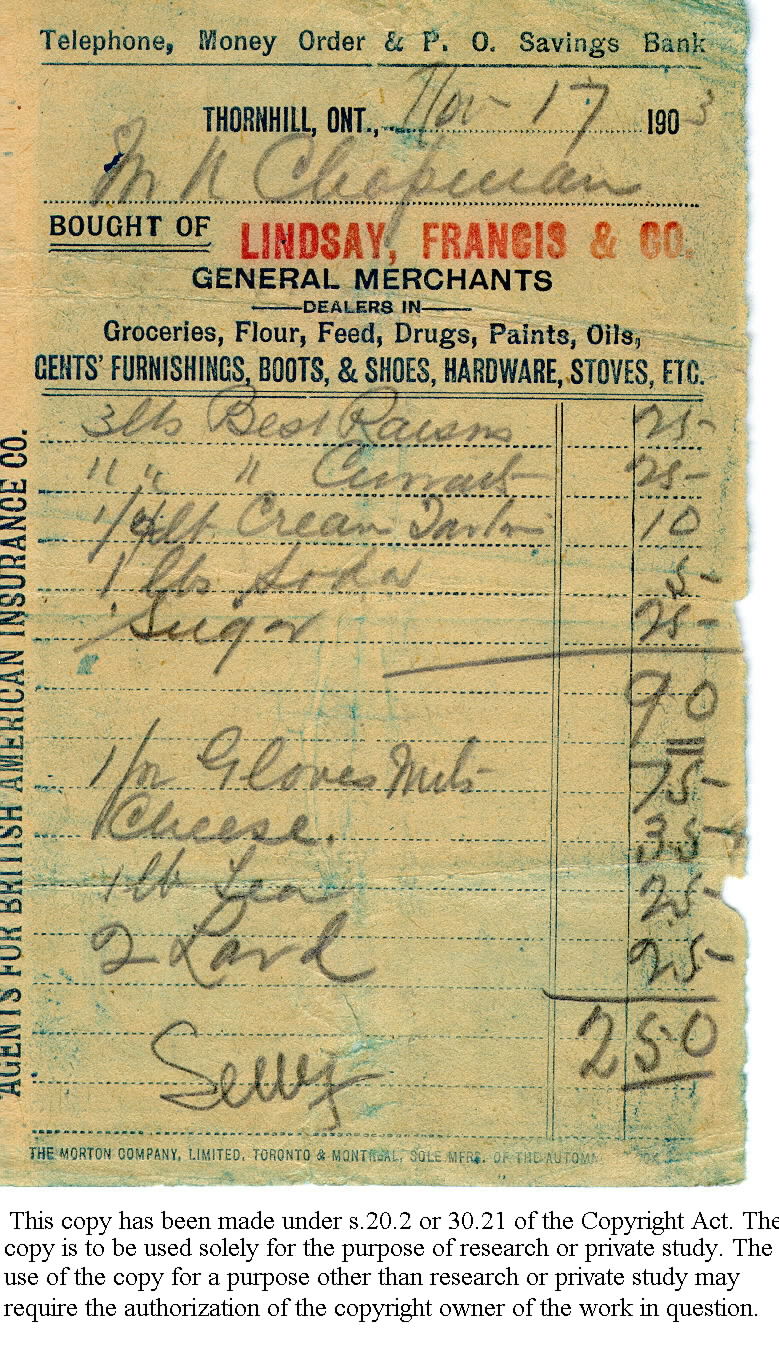 Telephone, Money Order & P. O. Savings Bank
THORNHILL, ONT., Nov 17 1903
Mr N Chapman
BOUGHT OF LINDSAY, FRANCIS & CO.
GENERAL MERCHANTS
DEALERS IN
Groceries, Flour, Feed, Drugs, Paints, Oils,
GENTS' FURNISHINGS, BOOTS, & SHOES, HARDWARE, STOVES, ETC.
3 lbs Best Raisins 25-
" " " Currants 25-
1/4 lb Cream Tartar 10
1 lbs Soda 5-
Sugar 25-
90
1/pr Gloves Mits 75-
Cheese. 35-
1 lb Tea 25-
2 Lard 25-
2 50
AGENTS FOR BRITISH AMERICAN INSURANCE CO.
THE MORTON COMPANY, LIMITED, TORONTO & MONTREAL, SOLE MFRS. OF THE
This copy has been made under s.20.2 or 30.21 of the Copyright Act. The
copy is to be used solely for the purpose of research or private study. The
use of the copy for a purpose other than research or private study may
require the authorization of the copyright owner of the work in question.